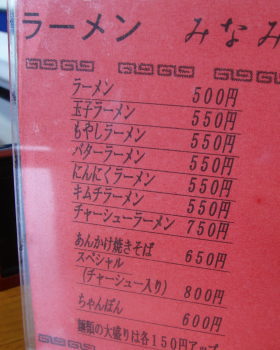 ラーメン みなみ
ラーメン 500円
玉子ラーメン 550円
もやしラーメン 550円
バターラーメン 550円
にんにくラーメン 550円
キムチラーメン 550円
チャーシューラーメン 750円
あんかけ焼きそば 650円
スペシャル
(チャーシュー入り) 800円
ちゃんぽん 600円
麺類の大盛りは各150円アップ